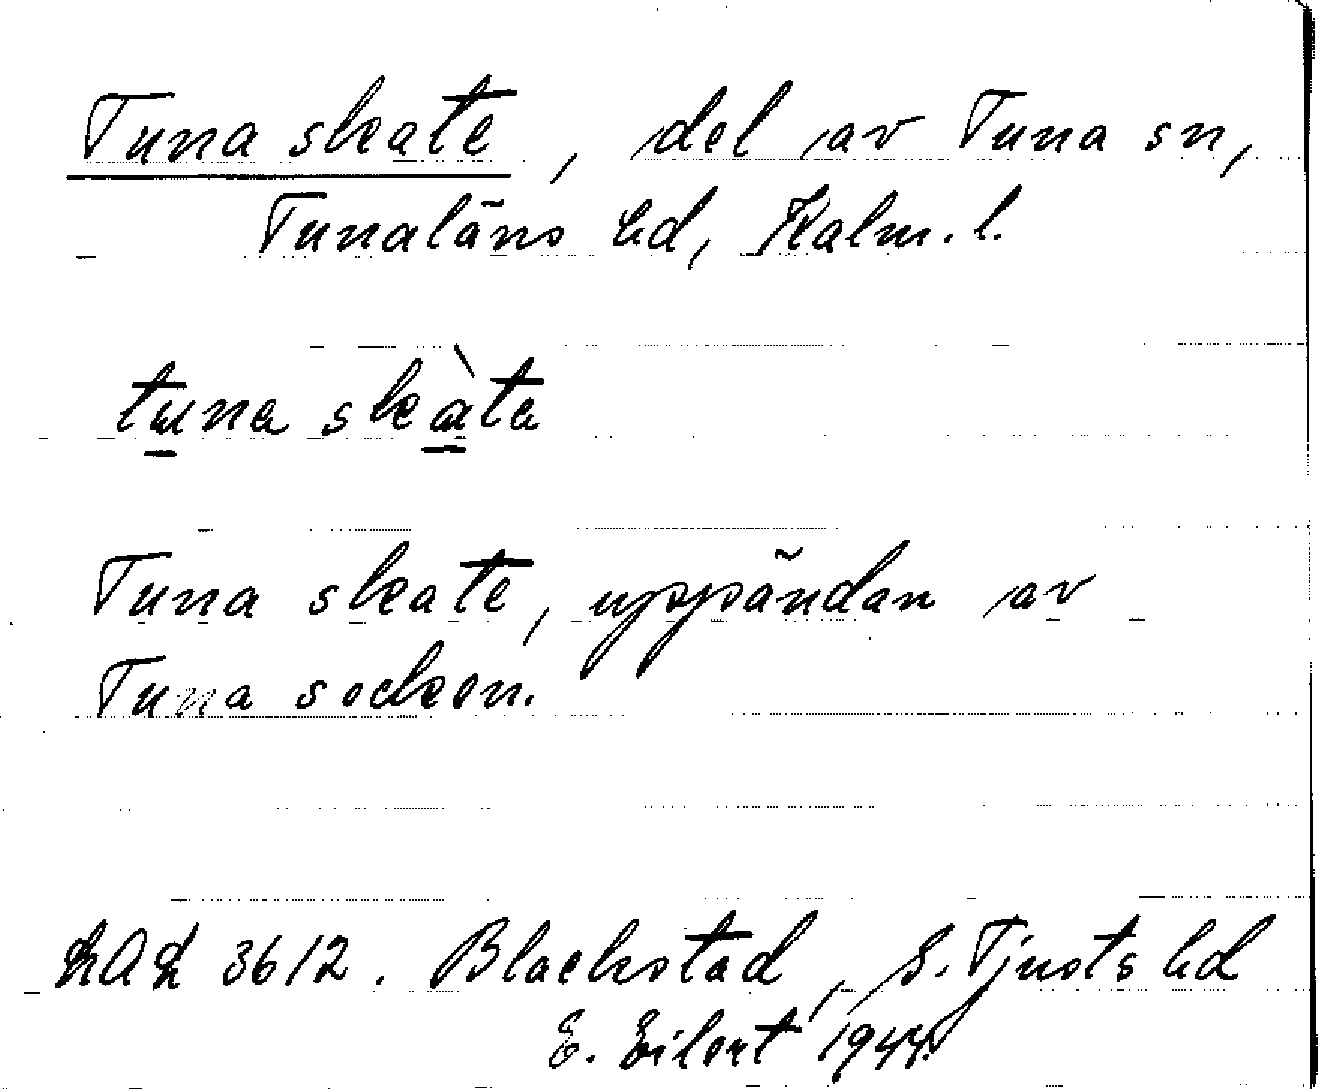 Tuna skate, del av Tuna sn,
Tunaläns hd, Kalm. l.
tuna skàta
Tuna skate, uppändan av
Tuna socken.
LAL 3612. Blackstad, S. Tjusts hd
E. Eilert 1944.